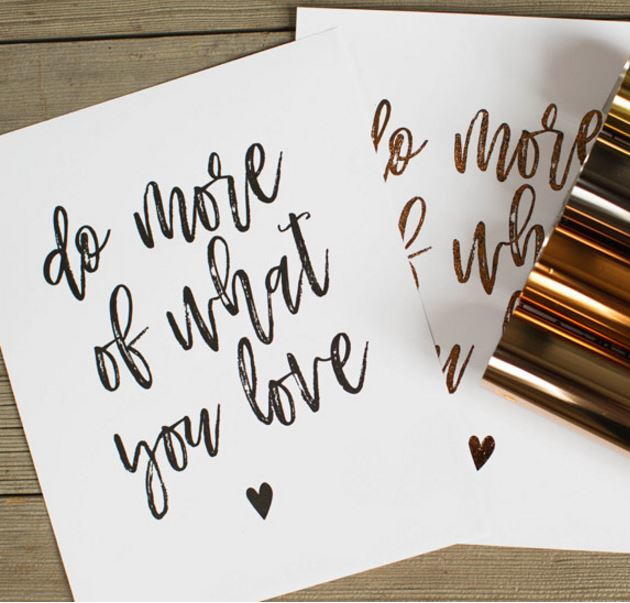 do more
of what
you love
do more
of wh